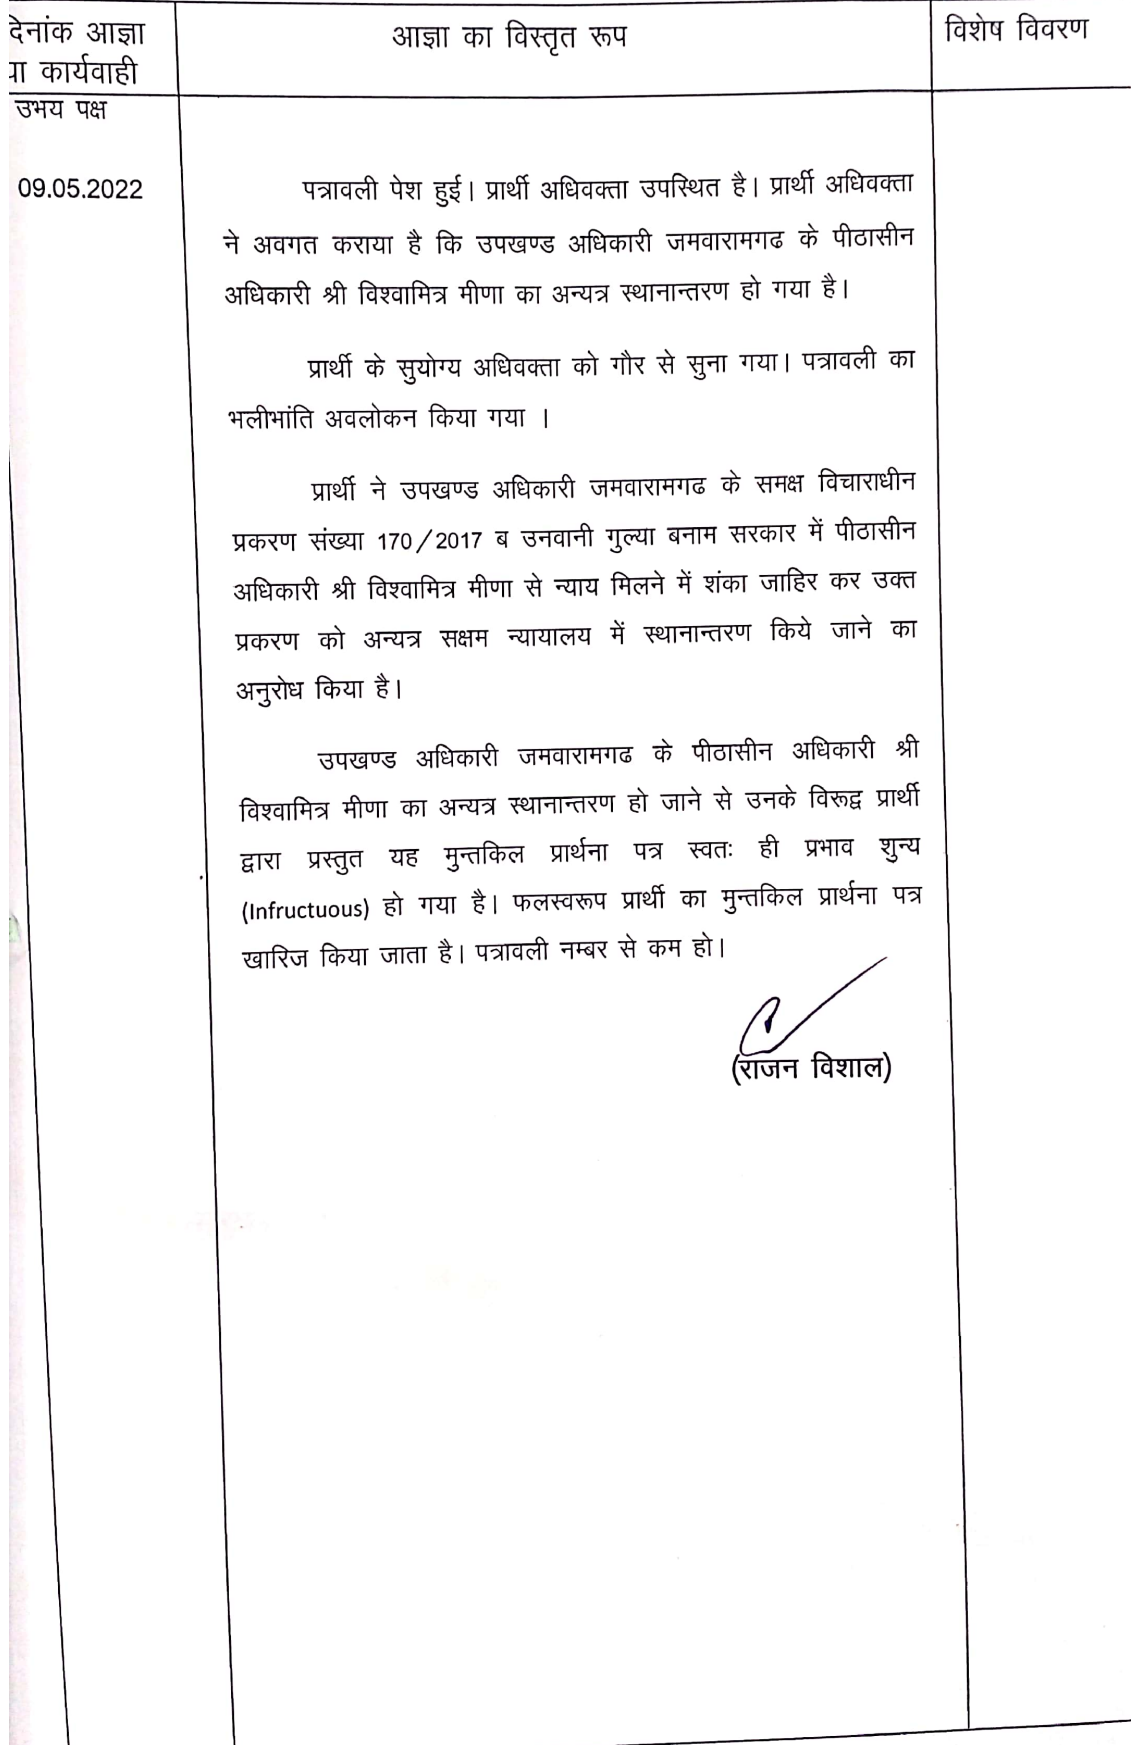 दिनांक आज्ञा
या कार्यवाही
उभय पक्ष
आज्ञा का विस्तृत रूप
विशेष विवरण
09.05.2022
पत्रावली पेश हुई। प्रार्थी अधिवक्ता उपस्थित है। प्रार्थी अधिवक्ता
ने अवगत कराया है कि उपखण्ड अधिकारी जमवारामगढ के पीठासीन
अधिकारी श्री विश्वामित्र मीणा का अन्यत्र स्थानान्तरण हो गया है।
प्रार्थी के सुयोग्य अधिवक्ता को गौर से सुना गया। पत्रावली का
भलीभांति अवलोकन किया गया ।
प्रार्थी ने उपखण्ड अधिकारी जमवारामगढ के समक्ष विचाराधीन
प्रकरण संख्या 170/2017 ब उनवानी गुल्या बनाम सरकार में पीठासीन
अधिकारी श्री विश्वामित्र मीणा से न्याय मिलने में शंका जाहिर कर उक्त
प्रकरण को अन्यत्र सक्षम न्यायालय में स्थानान्तरण किये जाने का
अनुरोध किया है।
उपखण्ड अधिकारी जमवारामगढ के पीठासीन अधिकारी श्री
विश्वामित्र मीणा का अन्यत्र स्थानान्तरण हो जाने से उनके विरूद्व प्रार्थी
द्वारा प्रस्तुत यह मुन्तकिल प्रार्थना पत्र स्वतः ही प्रभाव शुन्य
(Infructuous) हो गया है। फलस्वरूप प्रार्थी का मुन्तकिल प्रार्थना पत्र
खारिज किया जाता है। पत्रावली नम्बर से कम हो।
(राजन विशाल)